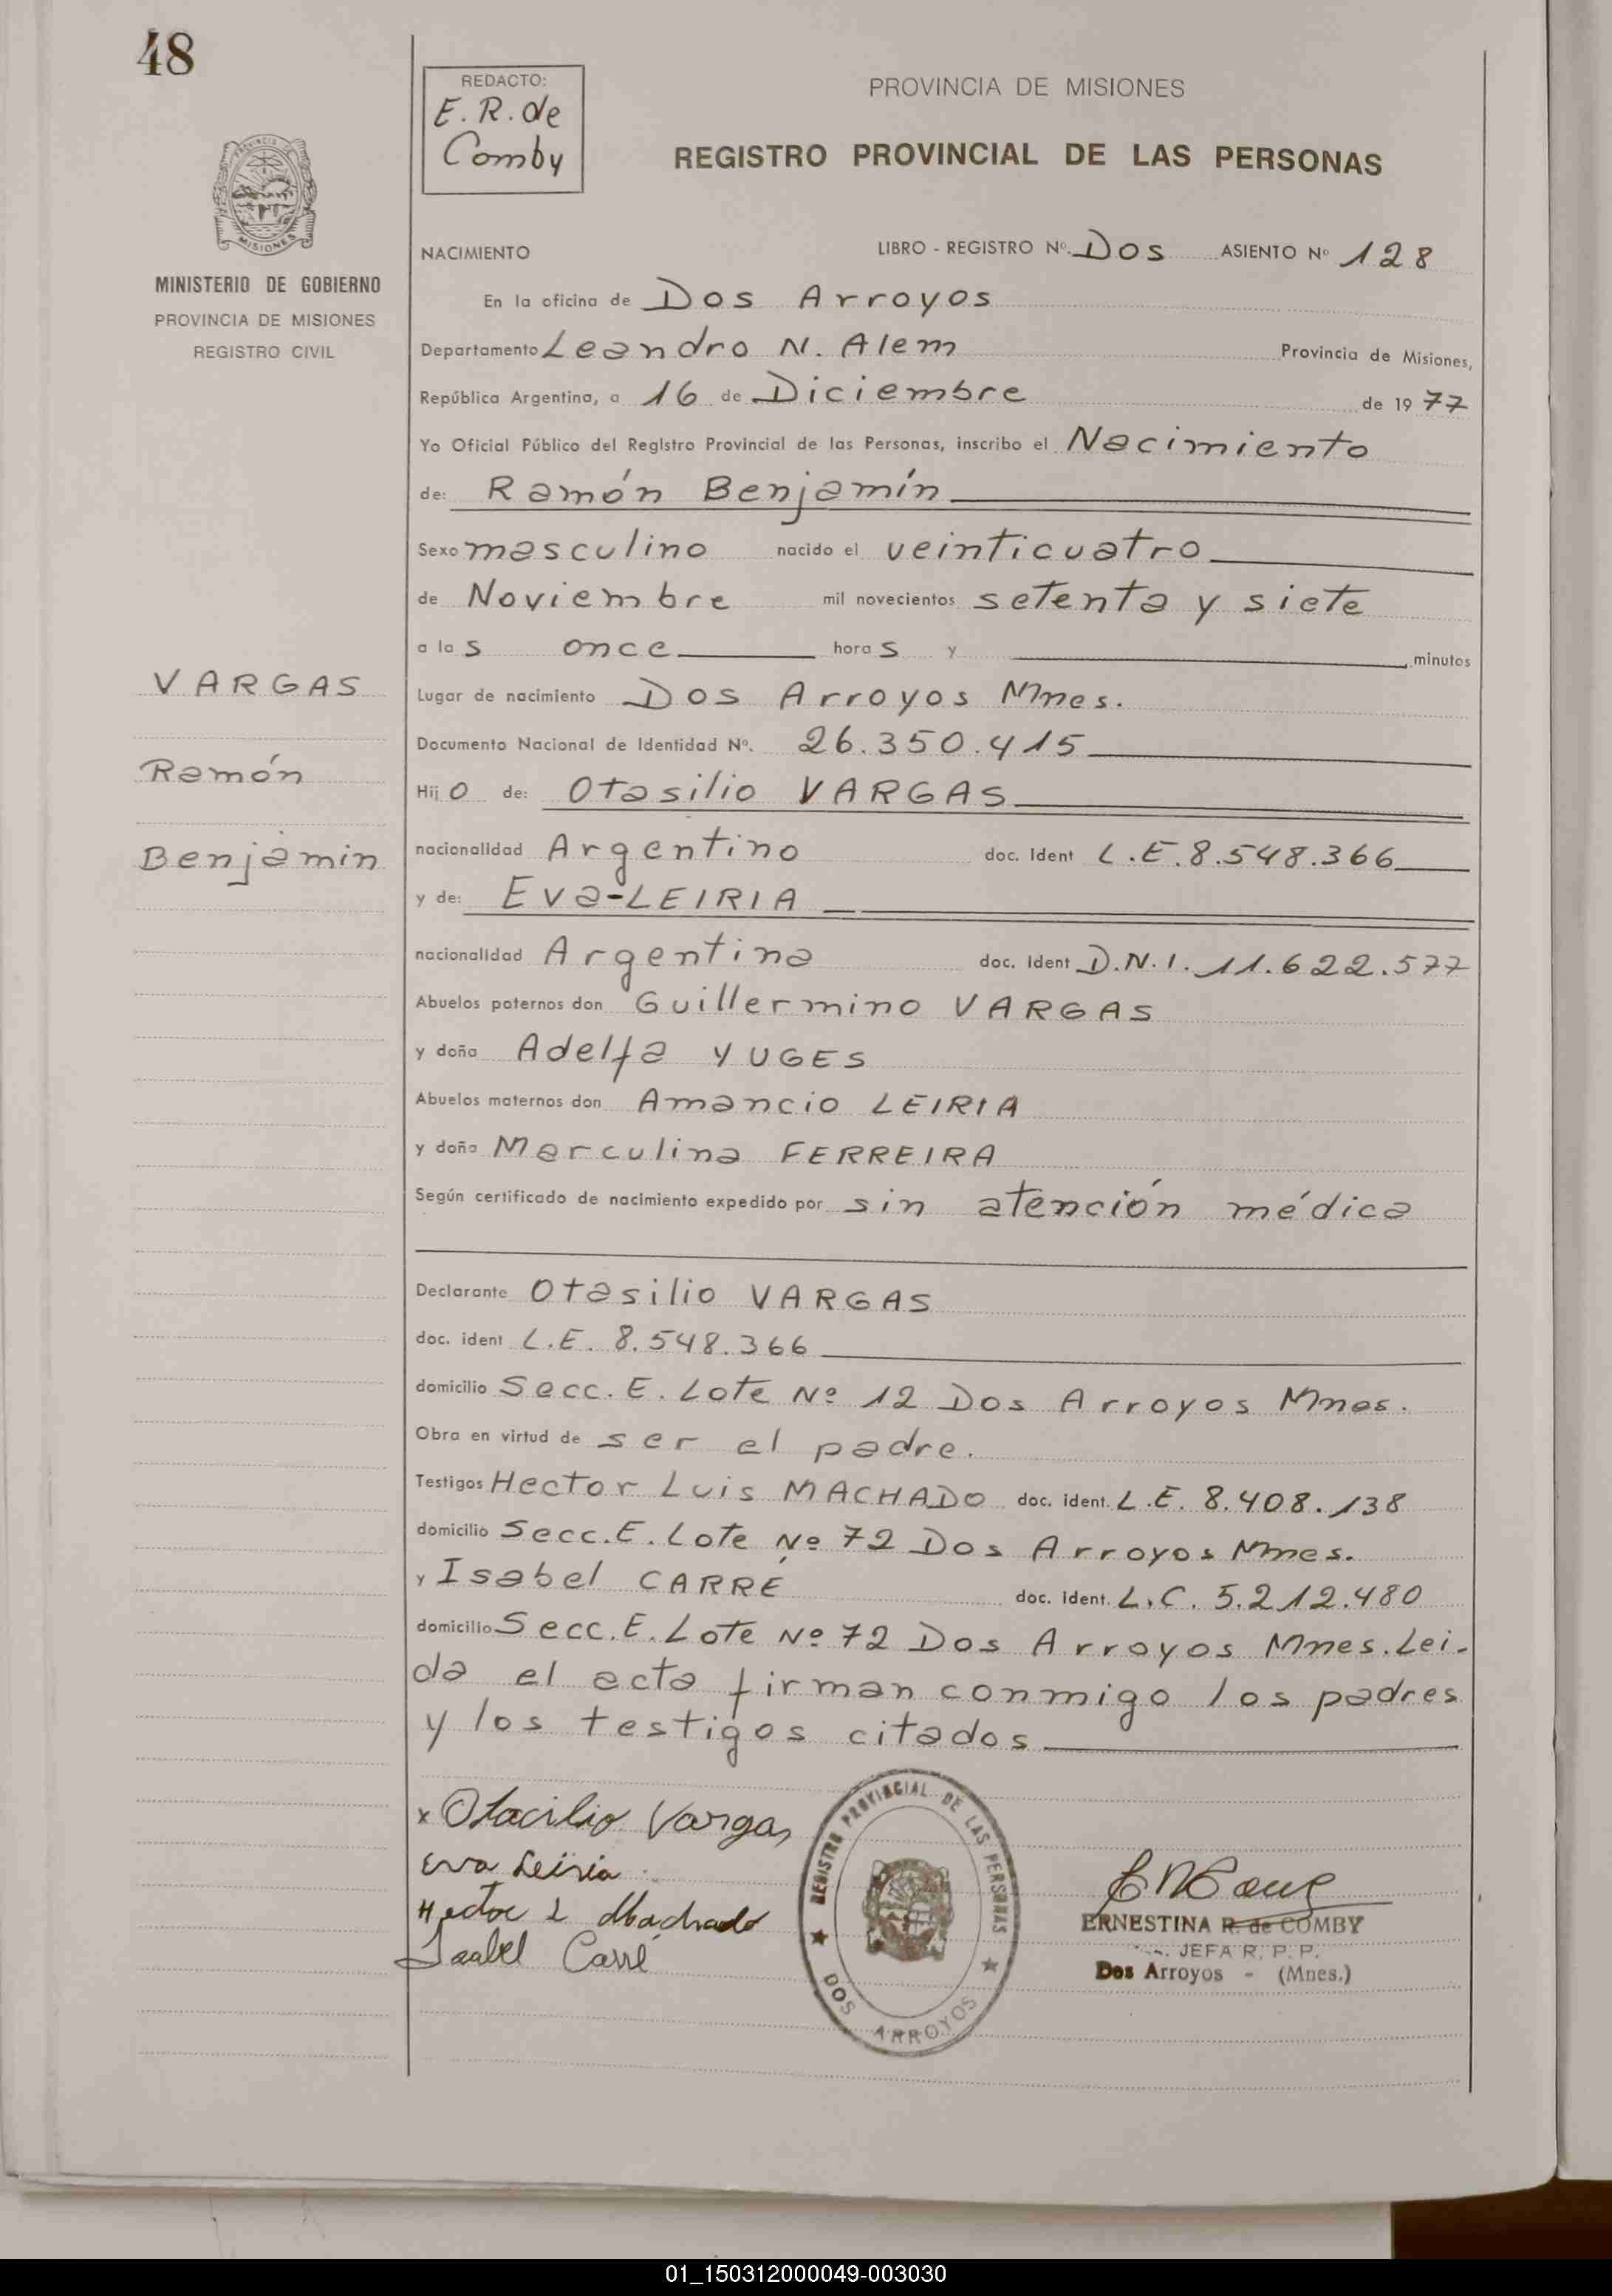 48
REDACTO:
E. R. de
Comby
PROVINCIA DE MISIONES
REGISTRO PROVINCIAL DE LAS PERSONAS
MISIONES
MINISTERIO DE GOBIERNO
PROVINCIA DE MISIONES
REGISTRO CIVIL
NACIMIENTO LIBRO - REGISTRO Nº. Dos ASIENTO Nº 128
En la oficina de Dos Arroyos
Departamento Leandro N. Alem Provincia de Misiones,
República Argentina, a 16 de Diciembre de 1977
Yo Oficial Público del Registro Provincial de las Personas, inscribo el Nacimiento
de: Ramón Benjamín
Sexo masculino nacido el veinticuatro
de Noviembre mil novecientos setenta y siete
a las once horas y minutos
VARGAS
Ramón
Benjamin
Lugar de nacimiento Dos Arroyos Mnes.
Documento Nacional de Identidad Nº. 26.350.415
Hijo de: Otasilio VARGAS
nacionalidad Argentino doc. Ident L.E. 8.548.366
y de: Eva-LEIRIA
nacionalidad Argentina doc. Ident D.N.I. 11.622.577
Abuelos paternos don Guillermino VARGAS
y doña Adelfa YUGES
Abuelos maternos don Amancio LEIRIA
y doña Marculina FERREIRA
Según certificado de nacimiento expedido por sin atención médica
Declarante Otasilio VARGAS
doc. ident L.E. 8.548.366
domicilio Secc. E. Lote Nº 12 Dos Arroyos Mnes.
Obra en virtud de ser el padre.
Testigos Hector Luis MACHADO doc. ident. L.E. 8.408.138
domicilio Secc. E. Lote Nº 72 Dos Arroyos Mnes.
y Isabel CARRE doc. Ident. L.C. 5.212.480
domicilio Secc. E. Lote Nº 72 Dos Arroyos Mnes. Lei-
da el acta firman conmigo los padres
y los testigos citados
x Otacilio Vargas
Eva Leiria
Hector L Machado
Isabel Carré
REGISTRO PROVINCIAL DE LAS PERSONAS
DOS ARROYOS
ERNESTINA R. de COMBY
JEFA R. P. P.
Dos Arroyos - (Mnes.)
01_150312000049-003030